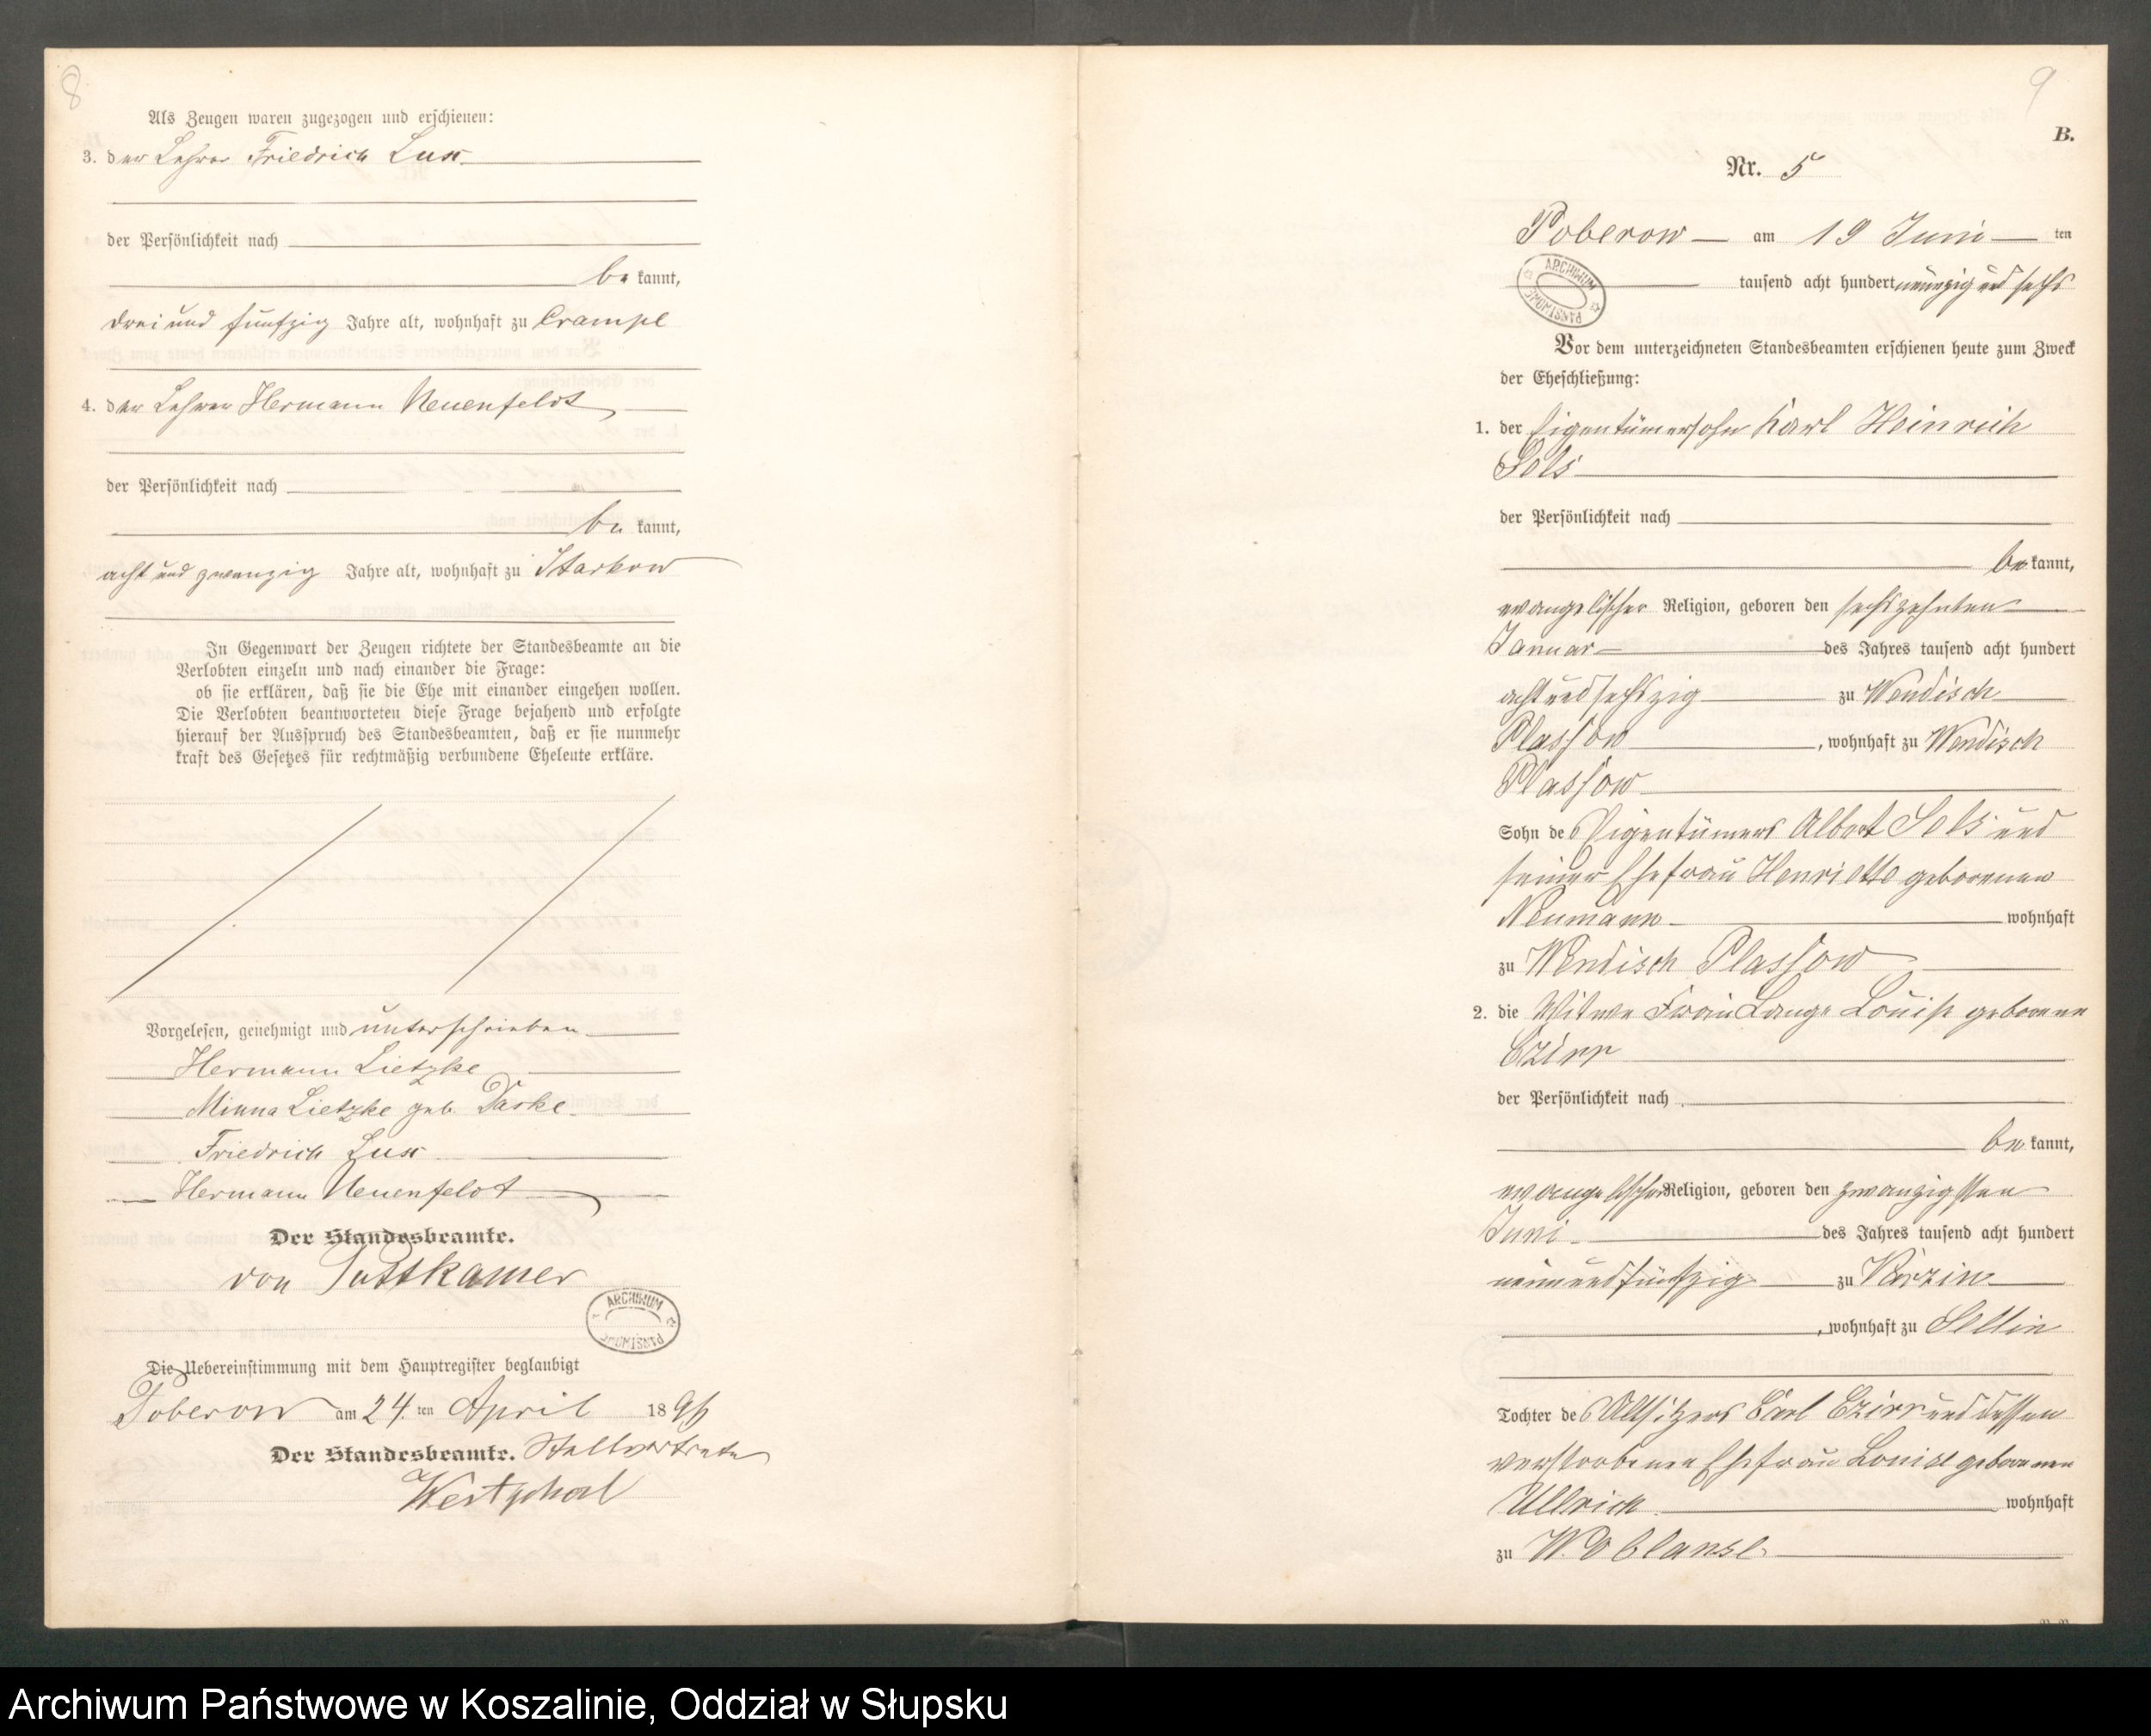 8
Als Zeugen waren zugezogen und erschienen:
3. der Lehrer Friedrich Lux
der Persönlichkeit nach
be kannt,
drei und fünfzig Jahre alt, wohnhaft zu Crampe
4. der Lehrer Hermann Neuenfeldt
der Persönlichkeit nach
be kannt,
acht und zwanzig Jahre alt, wohnhaft zu Starkow
In Gegenwart der Zeugen richtete der Standesbeamte an die
Verlobten einzeln und nach einander die Frage:
ob sie erklären, daß sie die Ehe mit einander eingehen wollen.
Die Verlobten beantworteten diese Frage bejahend und erfolgte
hierauf der Ausspruch des Standesbeamten, daß er sie nunmehr
kraft des Gesetzes für rechtmäßig verbundene Eheleute erkläre.
Vorgelesen, genehmigt und unterschrieben
Hermann Lietzke
Minna Lietzke geb. Taske
Friedrich Lux
Hermann Neuenfeldt
Der Standesbeamte.
von Puttkamer
ARCHIWUM PAŃSTWOWE
Die Uebereinstimmung mit dem Hauptregister beglaubigt
Poberow am 24. ten April 1896
Der Standesbeamte. Stellvertreter
Westphal
9
B.
Nr. 5
Poberow am 19 Juni ten
tausend acht hundert neunzig und sechs
ARCHIWUM PAŃSTWOWE
Vor dem unterzeichneten Standesbeamten erschienen heute zum Zweck
der Eheschließung:
1. der Eigentümersohn Karl Heinrich
Sels
der Persönlichkeit nach
be kannt,
evangelischer Religion, geboren den sechszehnten
Januar des Jahres tausend acht hundert
acht und sechszig zu Wendisch
Plassow, wohnhaft zu Wendisch
Plassow
Sohn des Eigentümers Albert Sels und
seiner Ehefrau Henriette geborenen
Neumann wohnhaft
zu Wendisch Plassow
2. die Witwe Frau Lange Louise geborene
Czirr
der Persönlichkeit nach
be kannt,
evangelischer Religion, geboren den zwanzigsten
Juni des Jahres tausend acht hundert
neun und fünfzig zu Varzin
, wohnhaft zu Sellin
Tochter des Altsitzers Carl Czirr und dessen
verstorbenen Ehefrau Louise geborenen
Ullrich wohnhaft
zu Woblanse
Archiwum Państwowe w Koszalinie, Oddział w Słupsku